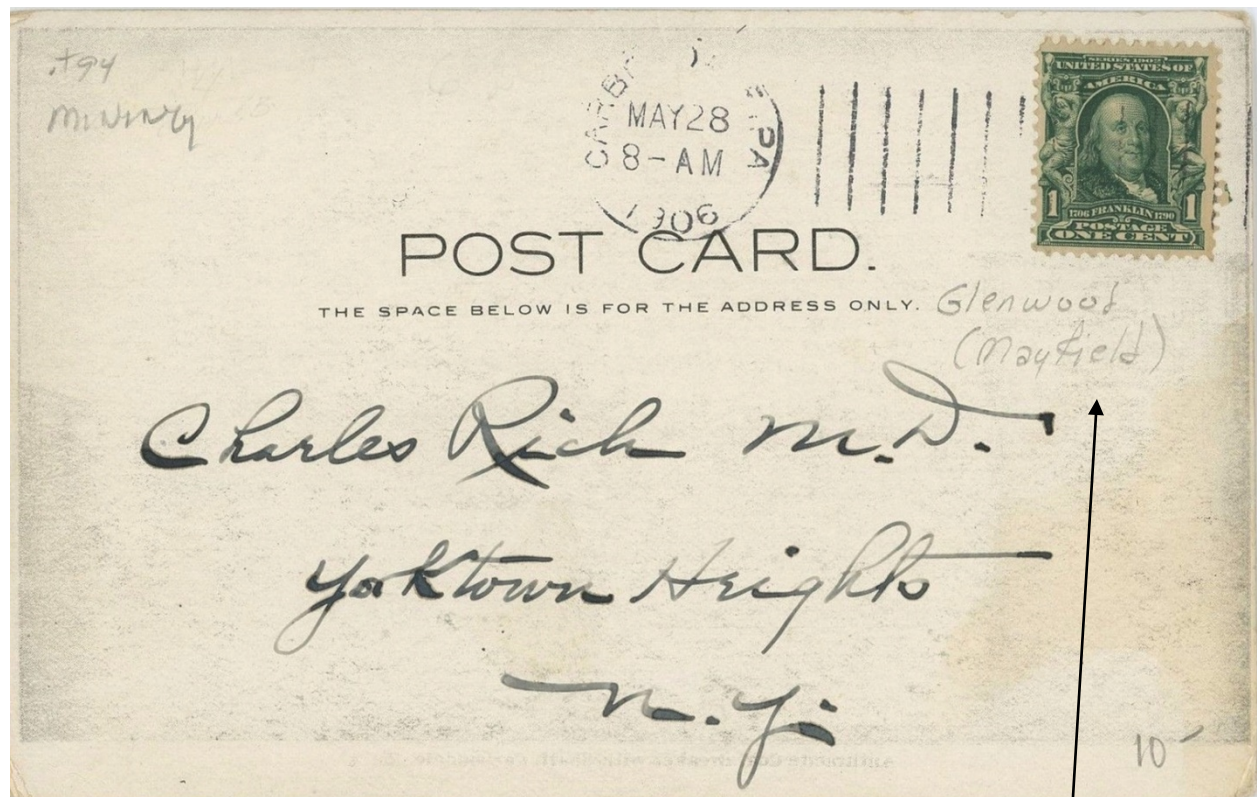 .t94
Mining
MAY 28
8-AM
1906
PA
SERIES 1902
UNITED STATES OF
AMERICA
1706 FRANKLIN 1790
1 1
POSTAGE
ONE CENT
POST CARD.
THE SPACE BELOW IS FOR THE ADDRESS ONLY.
Glenwood
(Mayfield)
Charles Rich M.D.
Yorktown Heights
N.Y.
10